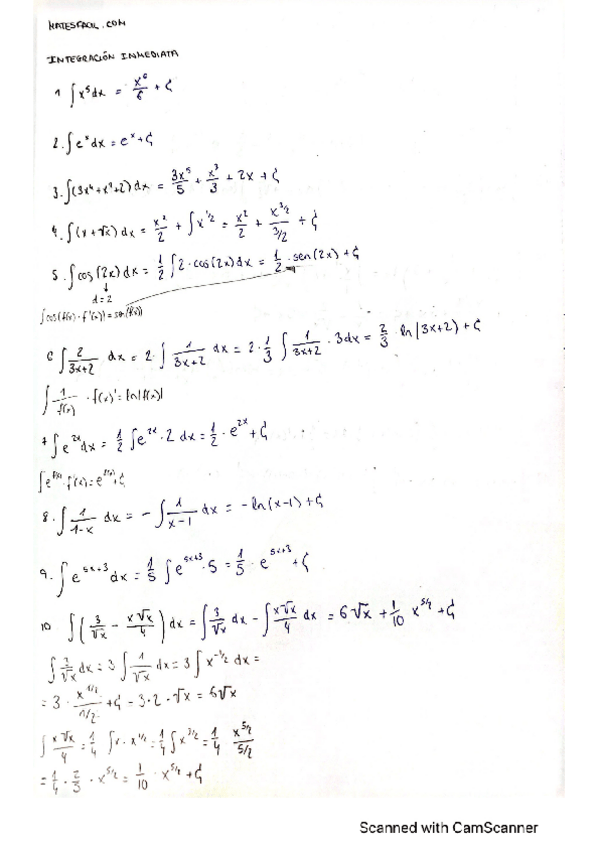 MATESFACIL.COM
INTEGRACIÓN INMEDIATA
1. ∫x⁵dx = x⁶/6 + C
2. ∫eˣdx = eˣ + C
3. ∫(3x⁴+x²+2)dx = 3x⁵/5 + x³/3 + 2x + C
4. ∫(x+√x)dx = x²/2 + ∫x^(1/2) = x²/2 + x^(3/2)/(3/2) + C
5. ∫cos(2x)dx = 1/2 ∫2·cos(2x)dx = 1/2 · sen(2x) + C
↓
d=2
∫cos(f(x)·f'(x)) = sen(f(x))
6 ∫2/(3x+2) dx = 2·∫1/(3x+2) dx = 2·1/3 ∫1/(3x+2) · 3dx = 2/3 · ln|3x+2) + C
∫1/f(x) · f(x)' = ln|f(x)|
7 ∫e^(2x)dx = 1/2 ∫e^(2x)·2 dx = 1/2 · e^(2x) + C
∫e^(f(x))·f'(x) = e^(f(x)) + C
8. ∫1/(1-x) dx = -∫1/(x-1) dx = -ln(x-1) + C
9. ∫e^(5x+3)dx = 1/5 ∫e^(5x+3)·5 = 1/5 · e^(5x+3) + C
10 ∫(3/√x - x√x/4) dx = ∫3/√x dx - ∫x√x/4 dx = 6√x + 1/10 x^(5/2) + C
∫3/√x dx = 3∫1/√x dx = 3∫x^(-1/2) dx =
= 3 · x^(1/2)/(1/2) + C = 3·2·√x = 6√x
∫x√x/4 = 1/4 ∫x·x^(1/2) = 1/4 ∫x^(3/2) = 1/4 x^(5/2)/(5/2)
= 1/4 · 2/5 · x^(5/2) = 1/10 · x^(5/2) + C
Scanned with CamScanner